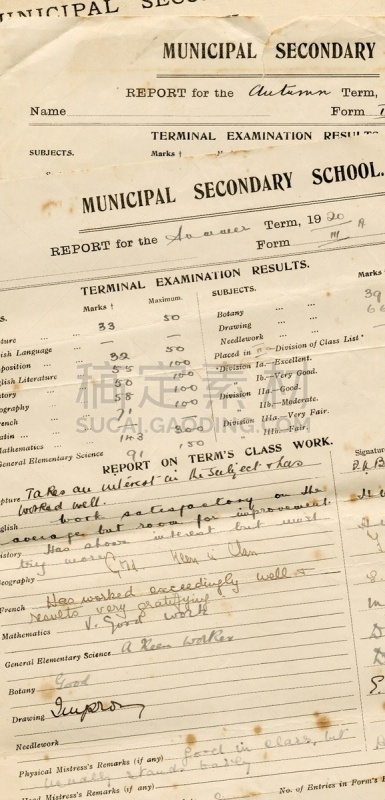 MUNICIPAL SECOND
MUNICIPAL SECONDARY
REPORT for the Autumn Term,
Name Form
TERMINAL EXAMINATION RESULTS
SUBJECTS. Marks †
MUNICIPAL SECONDARY SCHOOL.
REPORT for the Summer Term, 1920
Form III A
TERMINAL EXAMINATION RESULTS.
Marks † Maximum. SUBJECTS. Marks
pture 33 50 Botany 39
lish Language — — Drawing 66
position 32 50 Needlework
glish Literature 55 100 Placed in Division of Class List*
tory 50 100 *Division Ia.—Excellent.
ography 58 100 Ib.—Very Good.
ench 71 100 Division IIa.—Good.
atin — — IIb.—Moderate.
Mathematics 143 300 Division IIIa.—Very Fair.
General Elementary Science 91 150 IIIb.—Fair.
稿定素材
SUCAI.GAODING.COM
REPORT ON TERM'S CLASS WORK.
Signature
pture Takes an interest in the subject & has
worked well.
English work satisfactory on the
average but room for improvement
History Has shown interest but must
try more
Geography Good. Keen in class
French Has worked exceedingly well &
results very gratifying
Mathematics V. Good work
General Elementary Science A Keen worker
Botany Good
Drawing Improving
Needlework
Physical Mistress's Remarks (if any) Good in class, but
usually stands badly
Head Mistress's Remarks (if any) No. of Entries in Form's